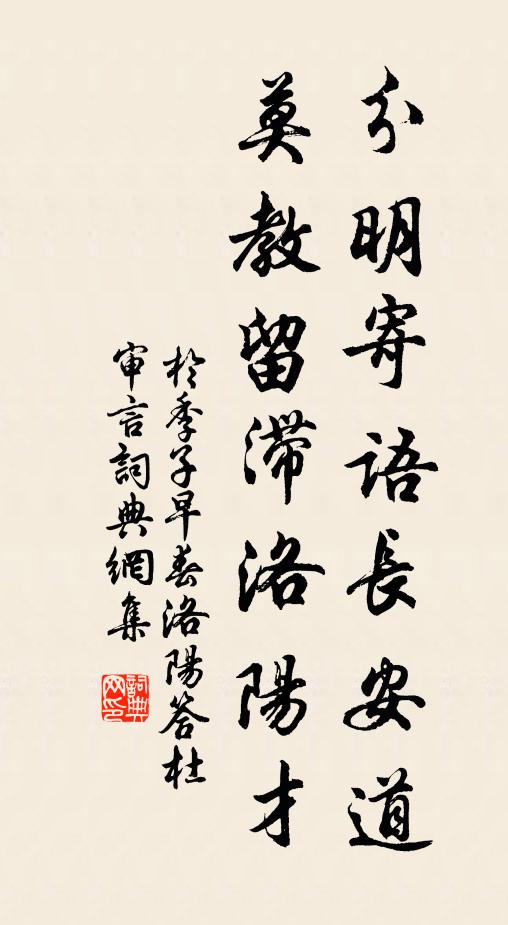 分明寄語長安道
莫教留滯洛陽才
於季子早春洛陽答杜
審言詞典網集
詞典
网印